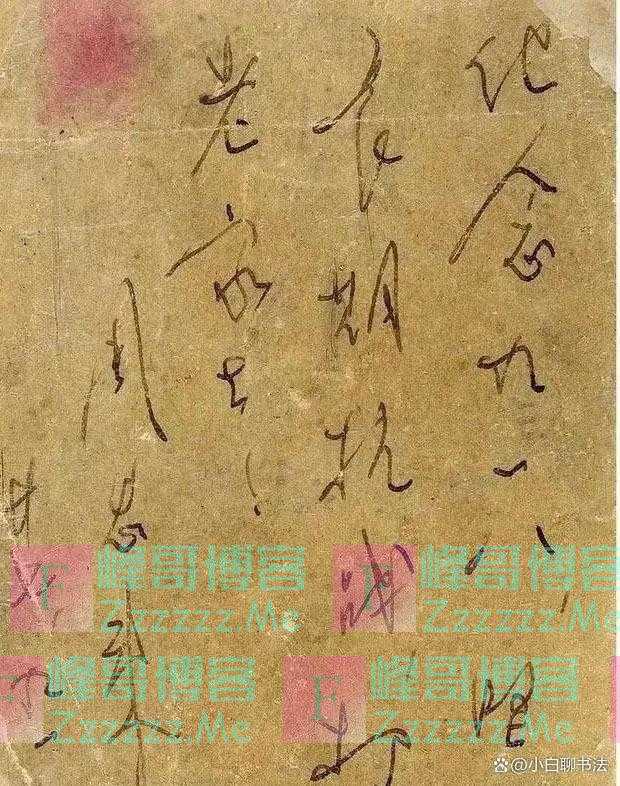 纪念九一八,坚
长期抗战,打
老家去!
周恩来
峰哥博客
Zzzzzz.Me
峰哥博客
Zzzzzz.Me
峰哥博客
Zzzzzz.Me
峰哥博客
Zzzzzz.Me
@小白聊书法